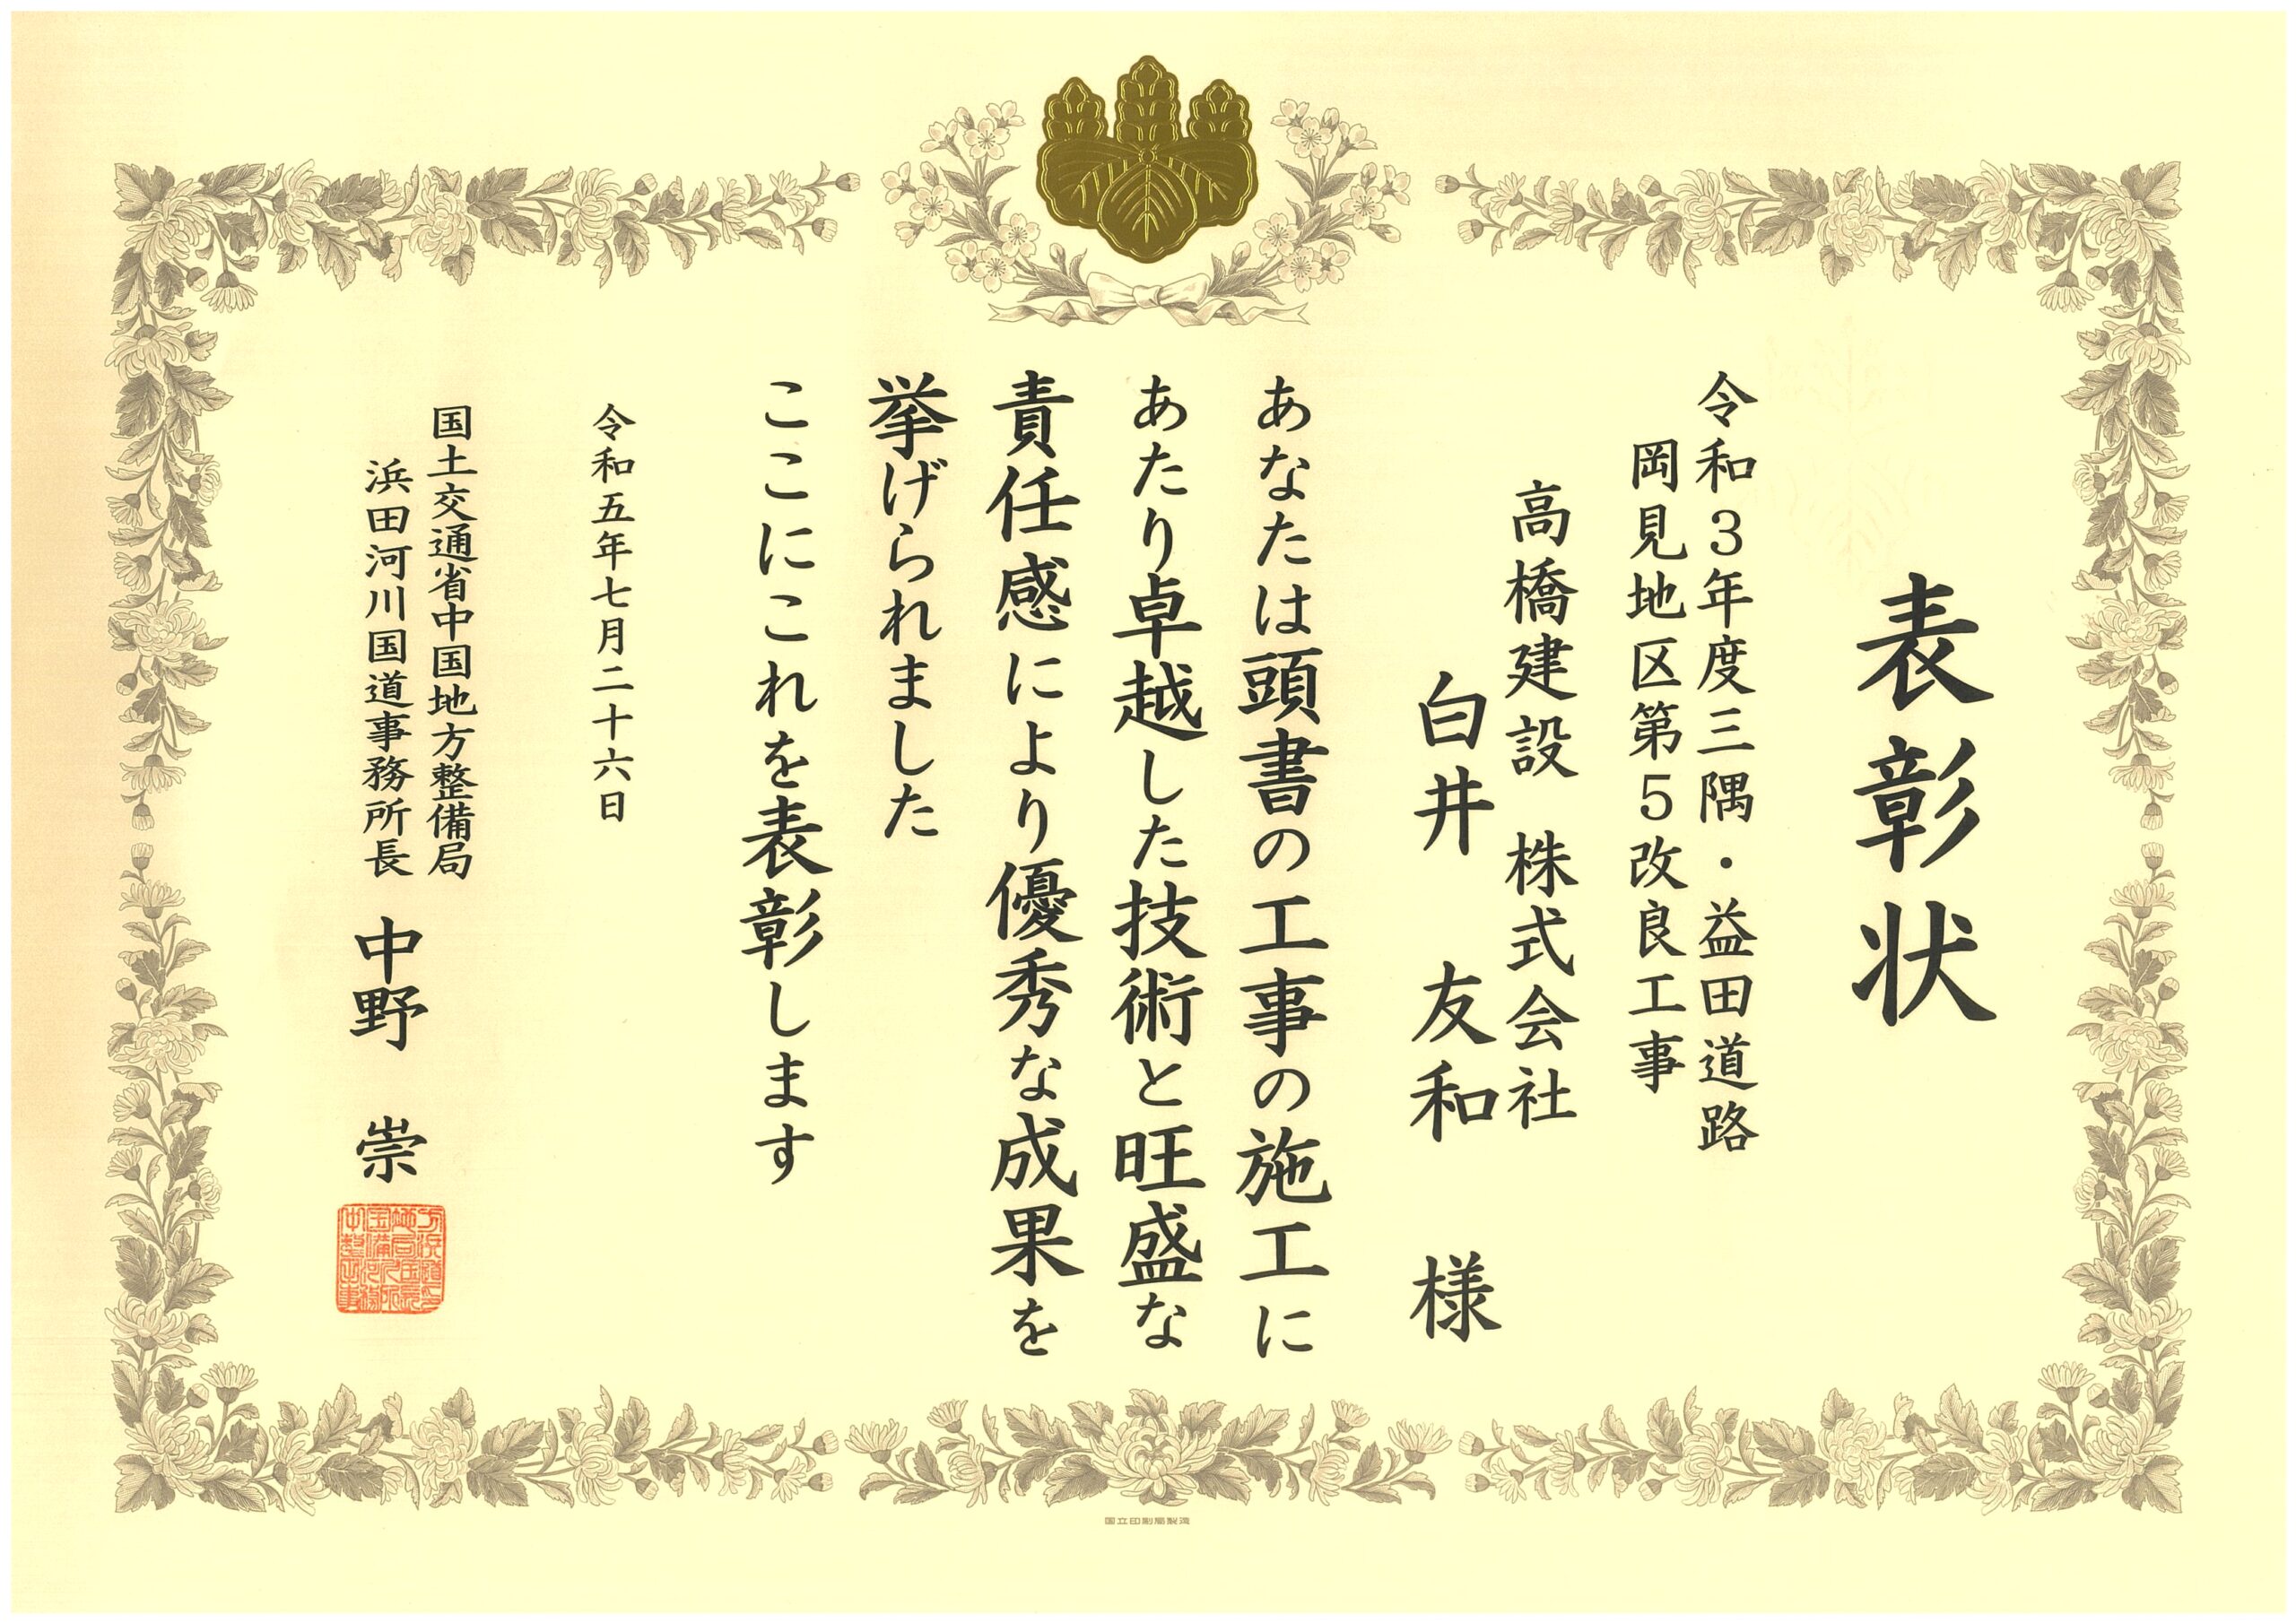 表彰状
令和３年度三隅・益田道路
岡見地区第５改良工事
高橋建設　株式会社
白井　友和　様
あなたは頭書の工事の施工に
あたり卓越した技術と旺盛な
責任感により優秀な成果を
挙げられました
ここにこれを表彰します
令和五年七月二十六日
国土交通省中国地方整備局
浜田河川国道事務所長　中野　崇
国立印刷局製造